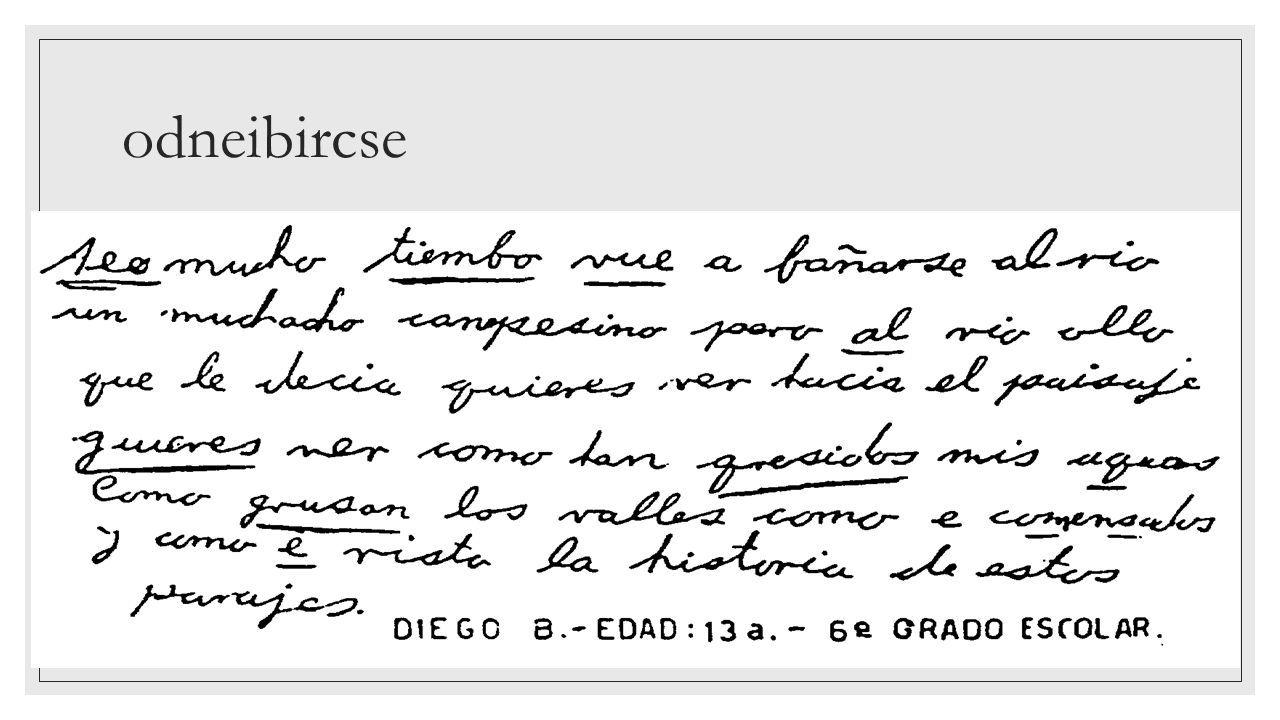 odneibircse
seo mucho tiembo vue a bañarse al rio
un muchacho campesino pero al rio ollo
que le decia quieres ver hacia el paisaje
guieres ver como tan gresidos mis aguas
como grusan los valles como e comensados
y como e visto la historia de estos
parajes.
DIEGO B.-EDAD:13 a.- 6º GRADO ESCOLAR.